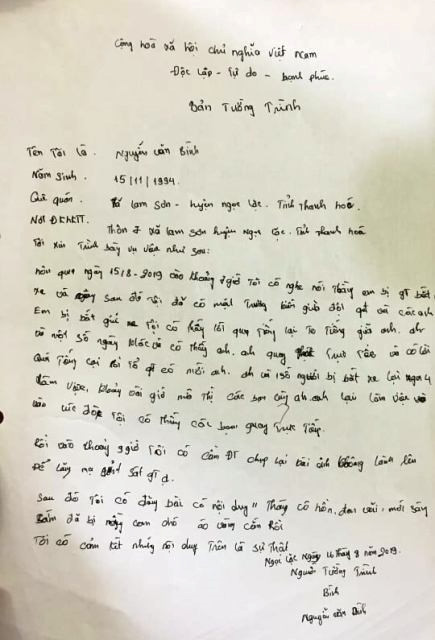 Cộng hoà xã hội chủ nghĩa việt nam
Độc lập - Tự do - hạnh phúc.
Bản Tường Trình
Tên Tôi là. Nguyễn văn Bình
Năm sinh. 15/11/1994.
Quê quán. xã lam sơn - huyện ngọc lặc. Tỉnh Thanh hoá.
Nơi ĐKHKTT. Thôn 7 xã lam sơn huyện Ngọc Lặc. Tỉnh Thanh hoá
Tôi xin Trình bày vụ việc như sau:
hôm qua ngày 15/8-2019 vào khoảng 7 giờ Tôi có nghe nói Thằng em bị gT bắt
xe và ngay sau đó tôi đã có mặt Trường
Em bị bắt giữ xe Tôi có thấy lời qua Tiếng lại To Tiếng giữa anh.
và một số người khác và có thấy anh. anh quay Trực Tiếp và có lời
Quá Tiếng lại Rồi Tổ gT có mời anh. và 1 số người bị bắt xe lại ngồi
làm việc, khoảng giờ các bạn cùng anh. anh lại làm việc và
vào lúc đó Tôi có thấy các bạn quay Trực Tiếp.
Rồi vào khoảng 9 giờ Tôi có cầm ĐT chụp lại vài ảnh không lành lên
Để lấy mạ sát gT
sau đó Tôi có đăng bài có nội duy " Thấy cô hồn. mới sáng
sớm đã bị mấy con chó áo vàng cắn Rồi
Tôi có cam kết những nội duy Trên là sự Thật
Ngọc Lặc Ngày 16 tháng 8 năm 2019.
Người Tường Trình
Bình
Nguyễn văn Bình